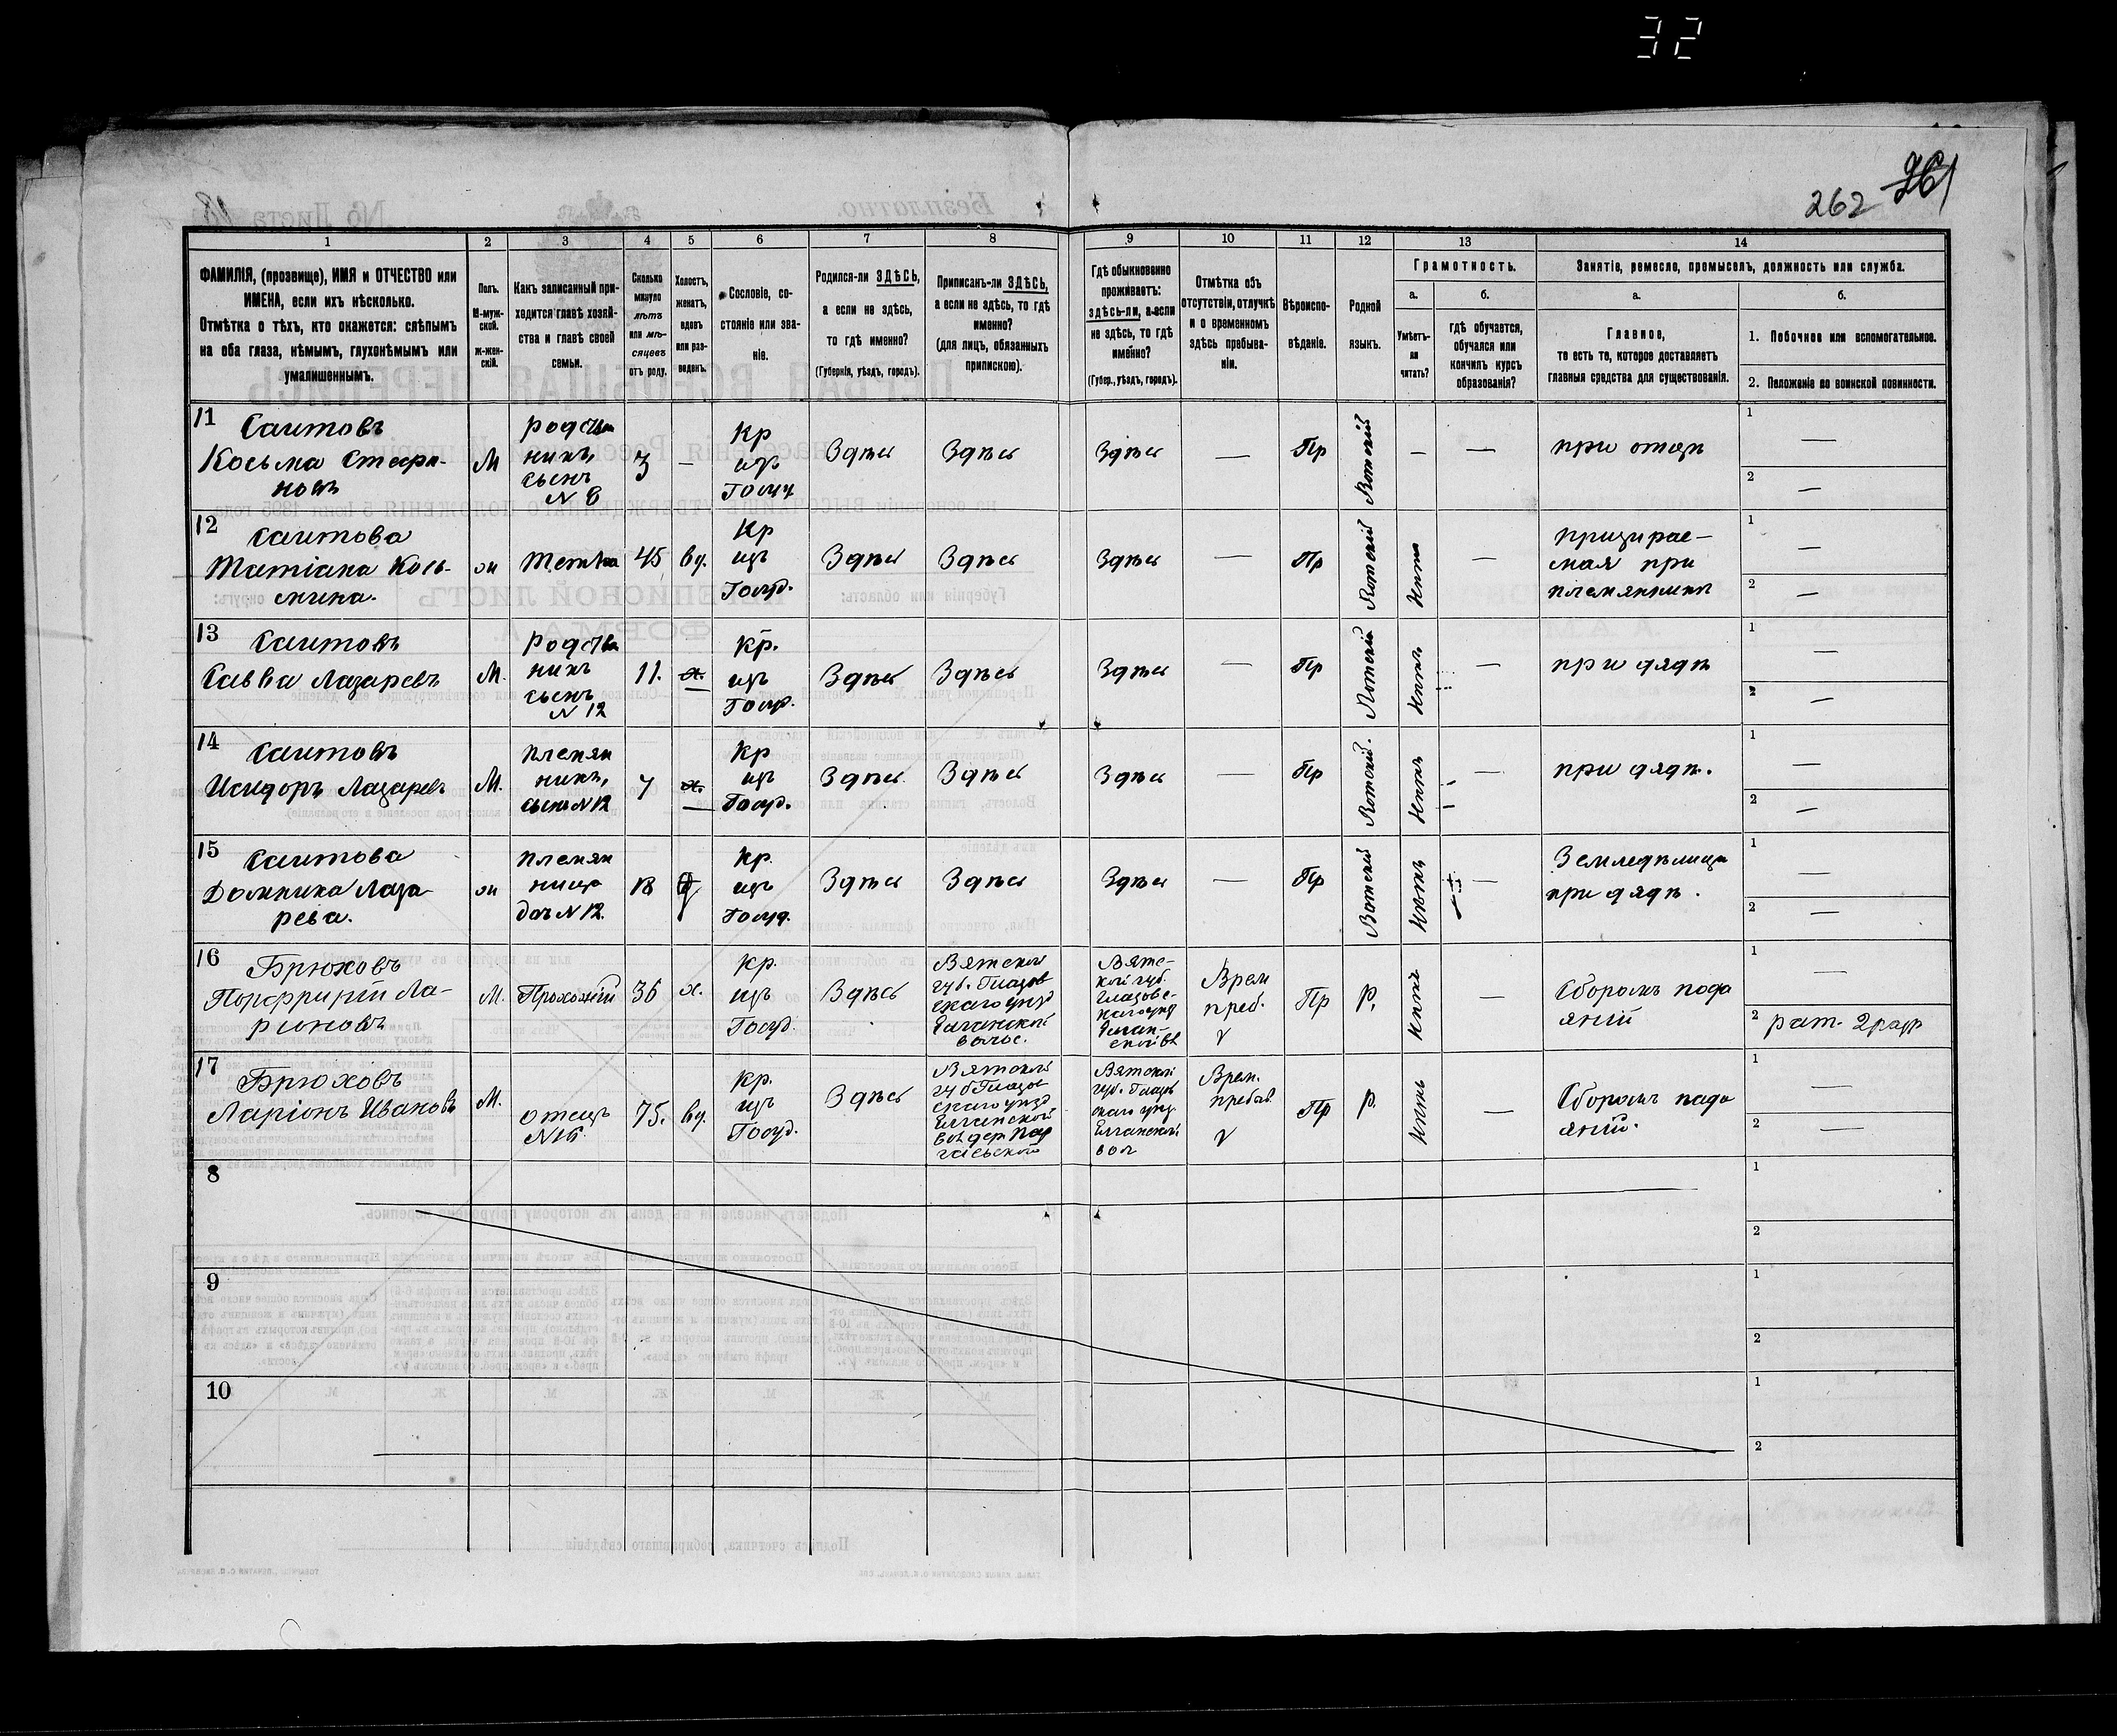 32
262 261
1 2 3 4 5 6 7 8 9 10 11 12 13 14
ФАМИЛІЯ, (прозвище), ИМЯ и ОТЧЕСТВО или
ИМЕНА, если ихъ нѣсколько.
Отмѣтка о тѣхъ, кто окажется: слѣпымъ
на оба глаза, нѣмымъ, глухонѣмымъ или
умалишеннымъ.
Полъ.
М-муж-
ской.
ж-жен-
скій.
Какъ записанный при-
ходится главѣ хозяй-
ства и главѣ своей
семьи.
Сколько
минуло
лѣтъ
или мѣ-
сяцевъ
отъ роду.
Холостъ,
женатъ,
вдовъ
или раз-
веденъ.
Сословіе, со-
стояніе или зва-
ніе.
Родился-ли ЗДѢСЬ,
а если не здѣсь,
то гдѣ именно?
(Губернія, уѣздъ, городъ).
Приписанъ-ли ЗДѢСЬ,
а если не здѣсь, то гдѣ
именно?
(для лицъ, обязанныхъ
припискою).
Гдѣ обыкновенно
проживаетъ:
здѣсь-ли, а если
не здѣсь, то гдѣ
именно?
(Губер., уѣздъ, городъ).
Отмѣтка объ
отсутствіи, отлучкѣ
и о временномъ
здѣсь пребыва-
ніи.
Вѣроиспо-
вѣданіе.
Родной
языкъ.
Грамотность.
а.
Умѣетъ-
ли
читать?
б.
гдѣ обучается,
обучался или
кончилъ курсъ
образованія?
Занятіе, ремесло, промыселъ, должность или служба.
а.
Главное,
то есть то, которое доставляетъ
главныя средства для существованія.
б.
1. Побочное или вспомогательное.
2. Положеніе по воинской повинности.
11 Саитовъ
Косьма Стефа-
новъ
М
родствен
никъ,
сынъ
N 8
3
—
Кр
изъ
Госуд
Здѣсь
Здѣсь
Здѣсь
—
Пр
Вотскій
—
—
при отцѣ
1 —
2 —
12 Саитова
Матіана Козь-
мина.
ж
Тетка
45
вд.
Кр
изъ
Госуд.
Здѣсь
Здѣсь
Здѣсь
—
Пр
Вотскій
Нѣтъ
—
призирае-
мая при
племянникѣ
1 —
2 —
13 Саитовъ
Савва Лазаревъ
М.
Родствен
никъ
сынъ
N 12
11.
х.
Кр.
изъ
Госуд.
Здѣсь
Здѣсь
Здѣсь
—
Пр
Вотскій
Нѣтъ
—
при дядѣ
1 —
2 —
14 Саитовъ
Исидоръ Лазаревъ
М.
племян
никъ,
сынъ N 12
7
х.
Кр
изъ
Госуд.
Здѣсь
Здѣсь
Здѣсь
—
Пр
Вотскій.
Нѣтъ
—
при дядѣ.
1 —
2 —
15 Саитова
Домника Лаза-
рева.
ж
племян
ница
доч N 12.
18
Кр.
изъ
Госуд.
Здѣсь
Здѣсь
Здѣсь
—
Пр
Вотскій
Нѣтъ
—
Земледѣлица
при дядѣ.
1 —
2 —
16 Брюховъ
Порфирій Ла-
ріоновъ
М.
Прохожій
36
х.
Кр.
изъ
Госуд.
Здѣсь
Вятской
губ. Глазов
скаго уѣзд
Елганской
волос.
Вятс-
кой губ.
Глазовс-
каго уѣзд
Елган-
ской вл
Врем
преб.
V
Пр
Р.
Нѣтъ
—
Сборомъ пода
яній
1 —
2 рат. 2 разр
17 Брюховъ
Ларіонъ Ивановъ
М.
отецъ
N 16.
75.
вд.
Кр.
изъ
Госуд.
Здѣсь
Вятской
губ Глазов
скаго уѣзд
Елганской
вол дер
Вятской
губ. Глазов
скаго уѣзд.
Елганской
вол
Врем.
пребыв.
V
Пр
Р.
Нѣтъ
—
Сборомъ пода
яній.
1 —
2 —
8
1
2
9
1
2
10
1
2